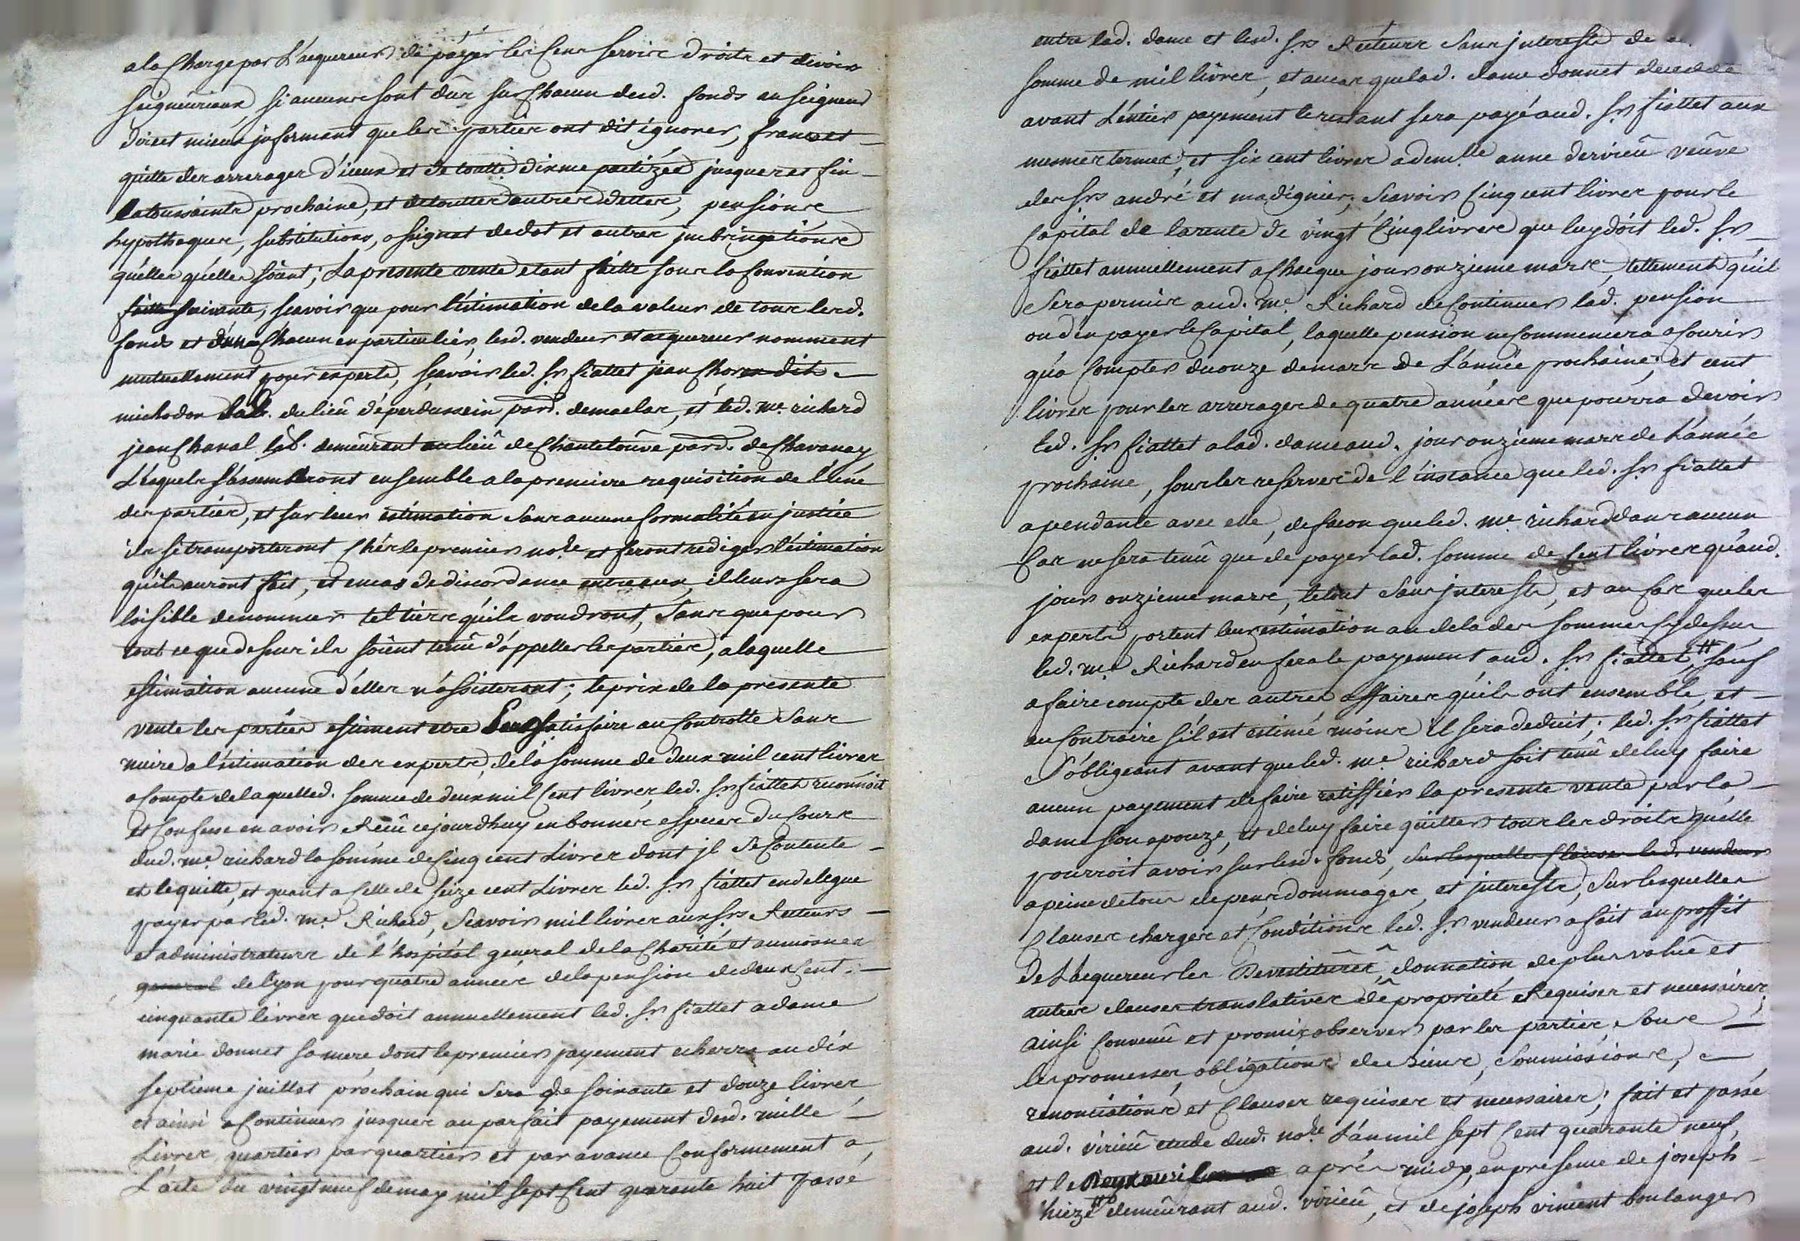 a la charge par L'aequereur de payer les cens service droits et devoirs
seigneuriaux si aucuns sont dûs sur chacun desd. fonds au seigneur
direct mieux informant que les parties ont dit ignorer, francs et
quitte des arrerages d'iceux et de toutte dixme jusques et fin
latoussaints prochaine, et de touttes autres dettes, pensions
hypotheques, substitutions, assignat de dot et autres
quelles quelles soient; La presente vente etant faitte sous la convention
suivante, scavoir que pour l'estimation de la valeur de tous lesd.
fonds et d'un chacun en particulier, lesd. vendeur et aequereur nomment
mutuellement pour experts, scavoir led. sr fiattet jean dit
michodon lab. du lieû d'éperdussein par. de maclas, et led. me richard
jean Chaval lab. demeûrant au lieû de Chanteloûve par. de Chavanay
Lésquels s'assembleront ensemble a la premiere requisition de l'une
des parties, et sur leur estimation sans aucune formalité en justice
ils se transporteront chés le premier nore et feront rediger l'estimation
quils auront fait, et en cas de discordance entre eux, il leur sera
loisible de nommer tel tiers quils voudront, sans que pour
tout ce que dessus ils soient tenû d'appeller les parties, a laquelle
estimation aucune d'elles n'assisteront; le prix de la presente
vente les parties estiment etre satisfaire au Controlle sans
nuire a l'estimation des experts, de la somme de deux mil cent livres
a compte de laquelled. somme de deux mil cent livres, led. sr fiattet reconnoit
et Confesse en avoir Receû cejourdhuy en bonnes especes du Cours
dud. me richard la somme de Cinq cent Livres dont il se Contente
et le quitte, et quant a celle de seize cent Livres led. sr fiattet en delegue
payer par led. me Richard, Scavoir mil livres aux srs Recteurs
et administrateurs de l'hospital general de la Charité et aumosnes
de lyon pour quatre années de la pension de deux cent
cinquante livres que doit annuellement led. sr fiattet a dame
marie donnet sa mere dont le premier payement echerra au dix
septieme juillet prochain qui sera de soixante et douze livres
et ainsi a Continuer jusques au parfait payement desd. mille
Livres, quartier par quartier et par avance Conformement a
L'acte du vingt neuf de may mil sept cent quarante huit passé
entre lad. dame et lesd. srs Recteurs sans interests de
somme de mil livres, et au cas que lad. dame donnet
avant L'entier payement le restant sera payé aud. sr fiattet aux
mesmes termes, et six cent livres a demlle anne dervieû veûve
des srs andré et madignier, Scavoir Cinq cent livres pour le
Capital de la rente de vingt Cinq livres que luy doit led. sr
fiattet annuellement a chaque jour onzieme mars, tellement quil
sera permis aud. me Richard de Continuer lad. pension
ou d'en payer le Capital, laquelle pension ne Commencera a Courir
qu'a Compter du onze de mars de L'année prochaine, et cent
livres pour les arrerages de quatre années que pourra devoir
led. sr fiattet a lad. dame aud. jour onzieme mars de L'année
prochaine, sous les reserves de l'instance que led. sr fiattet
a pendante avec elle, de facon que led. me richard dans aucun
cas ne sera tenû que de payer lad. somme de cent livres quaud.
jour onzieme mars, le tout sans interests, et au cas que les
experts portent leur estimation au dela des sommes cy dessus
led. me Richard en fera le payement aud. sr fiattet # sauf
a faire compte des autres affaires quils ont ensemble, et
au Contraire s'il est estimé moins il sera deduit; led. sr fiattet
s'obligeant avant que led. me richard soit tenû de luy faire
aucun payement de faire ratiffier la presente vente par la
dame son epouze, et de luy faire quitter tous les droits quelle
pourroit avoir sur lesd. fonds, sur lesquelle clause led. vendeur
a peine de tous depens, dommages, et interests, sur lesquelles
Clauses charges et Conditions led. sr vendeur a fait au proffit
de L'aequereur les Devestitûres, donnation de plus valûe et
autres clauses translatives de propriété Requises et necessaires,
ainsi Convenû et promis observer par les parties, sous
les promesses, obligations de biens, soumissions,
renonciations et Clauses requises et necessaires; fait et passé
aud. virieû etude dud. nore. L'an mil sept Cent quarante neuf,
et le apres midy, en presence de joseph
demeûrant aud. virieû, et de joseph vincent boulanger